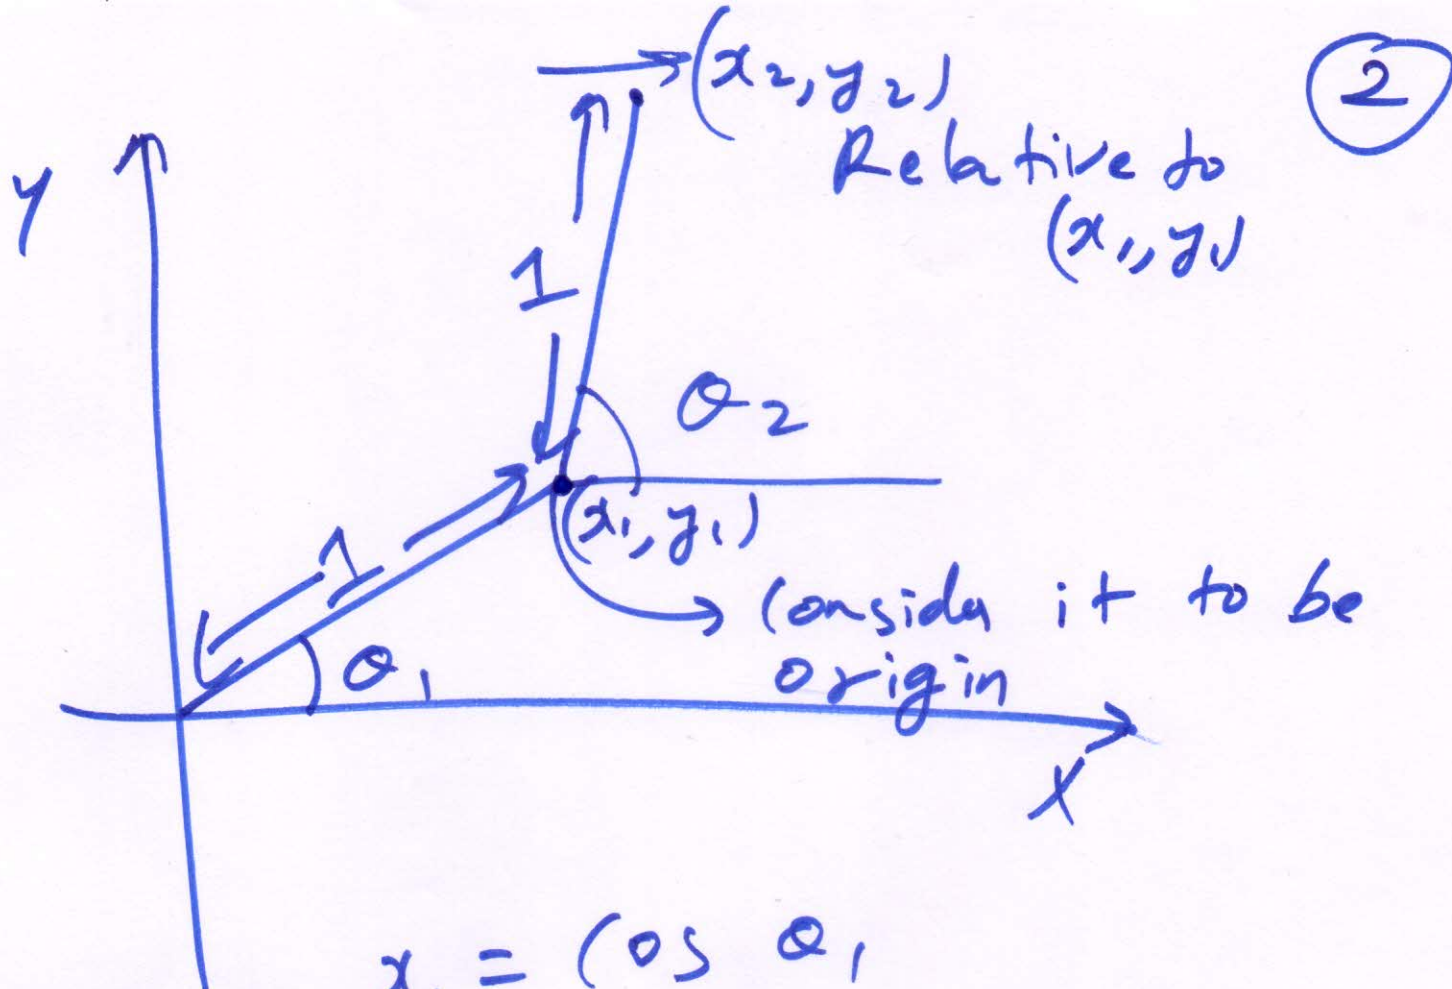 (x2, y2)
2
Relative to
(x1, y1)
y
1
θ2
(x1, y1)
1
Consider it to be
origin
θ1
X
x = Cos θ1